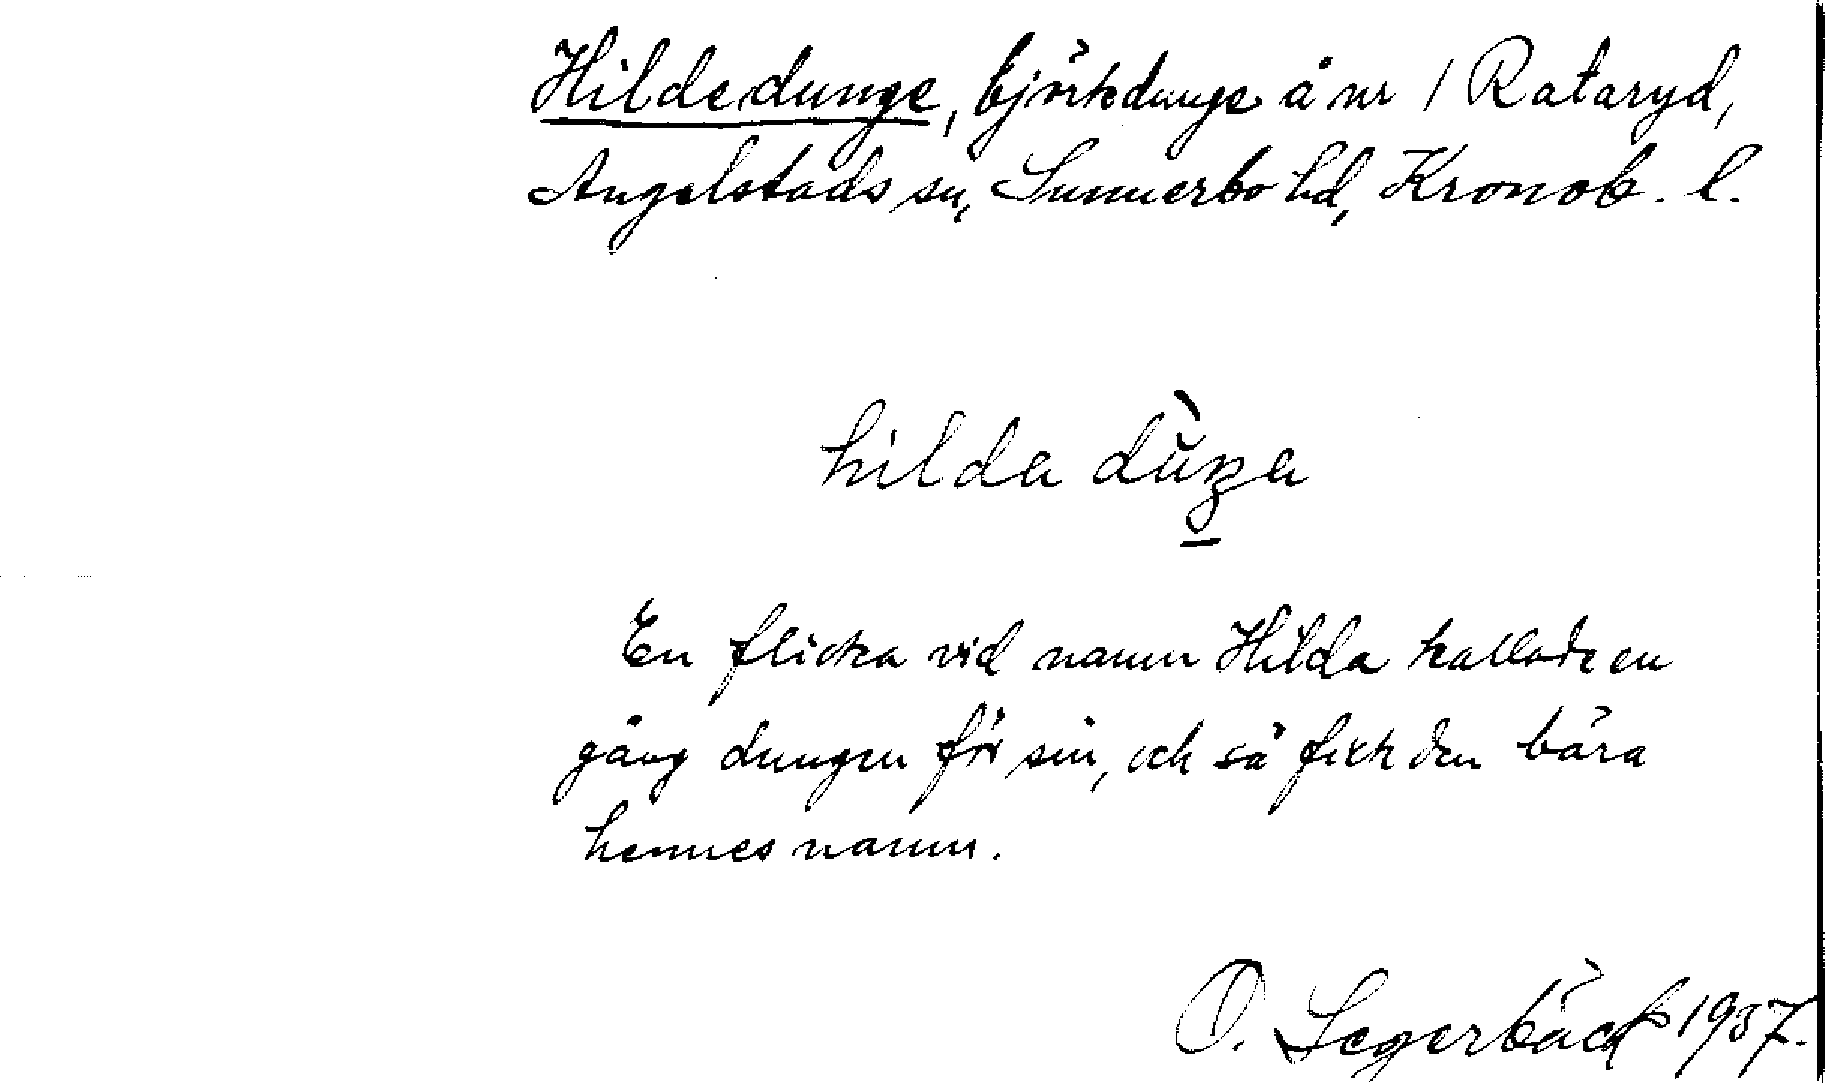 Hildedunge, björkdunge å nr 1 Rataryd,
Angelstads sn, Sunnerbo hd, Kronob. l.
hilda dùŋa
En flicka vid namn Hilda kallade en
gång dungen för sin, och så fick den bära
hennes namn.
O. Segerbäck 1937.